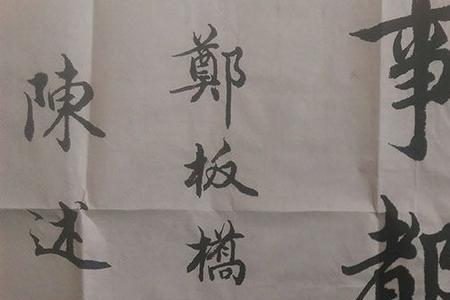 事都
鄭板橋
陳述